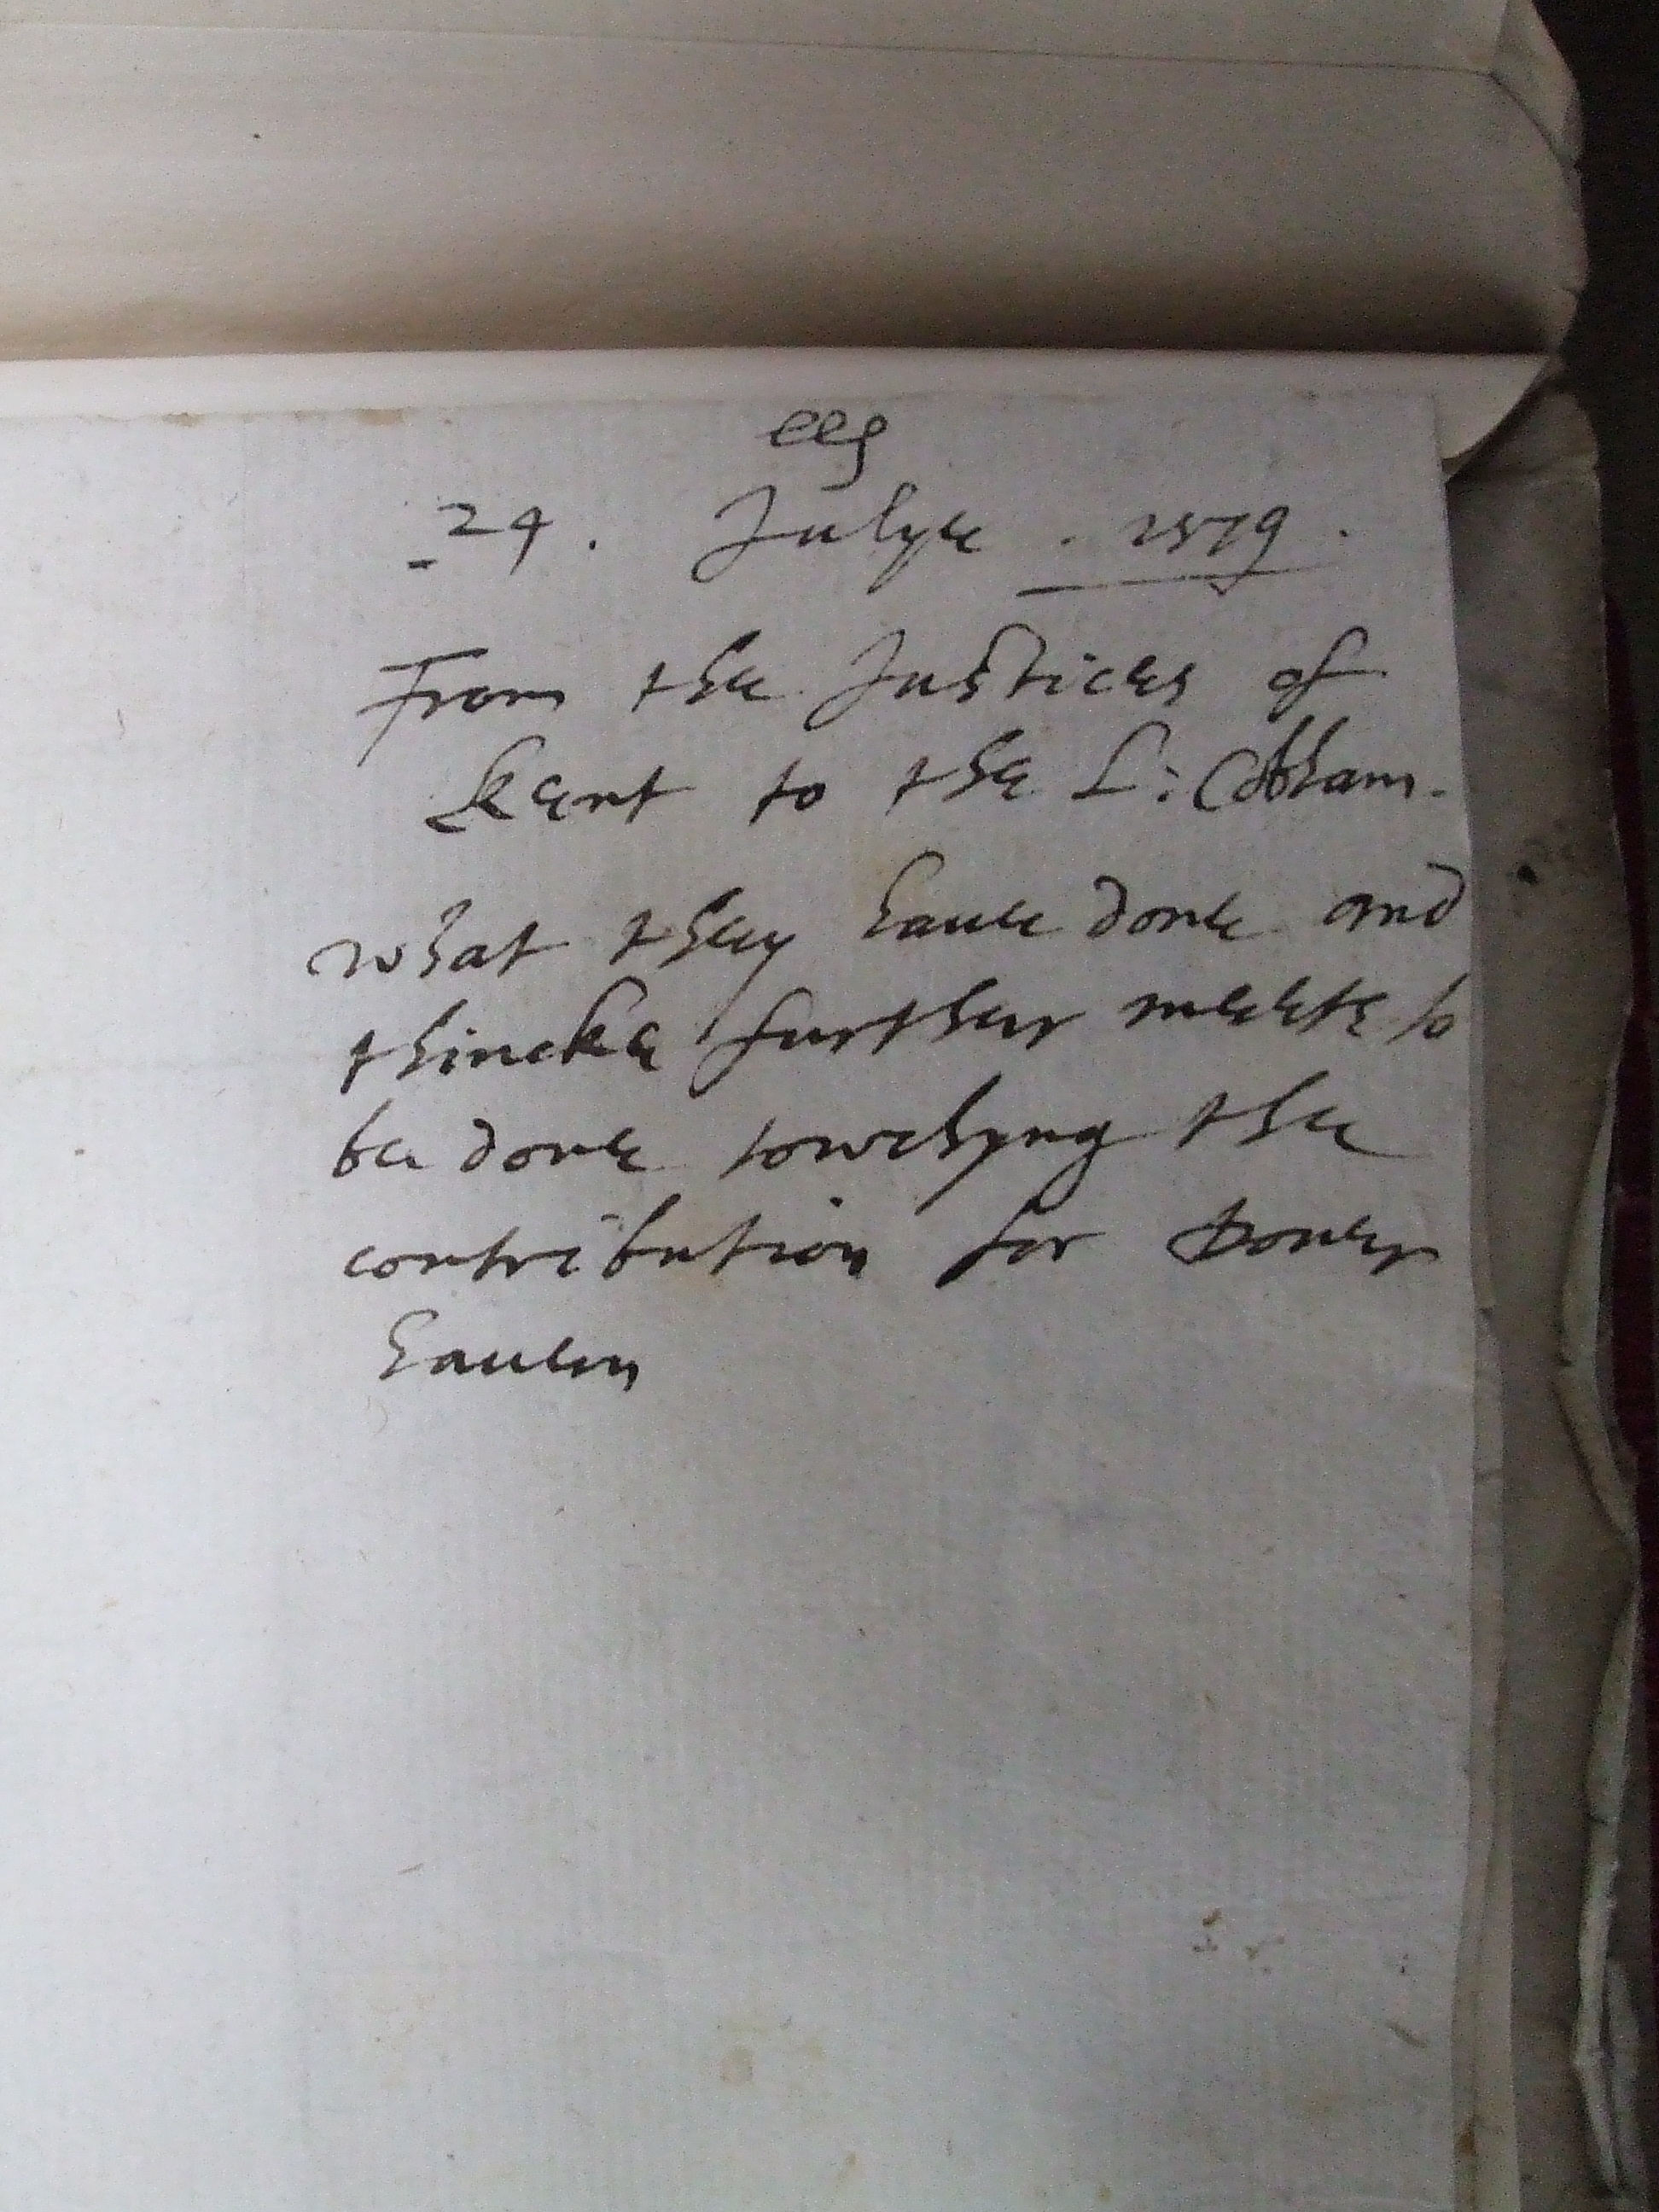 24. Julye. 1579.
From the Justices of
Kent to the L: Cobham.
what they haue done and
thincke further meete to
be done towchyng the
contribution for Douer
hauen